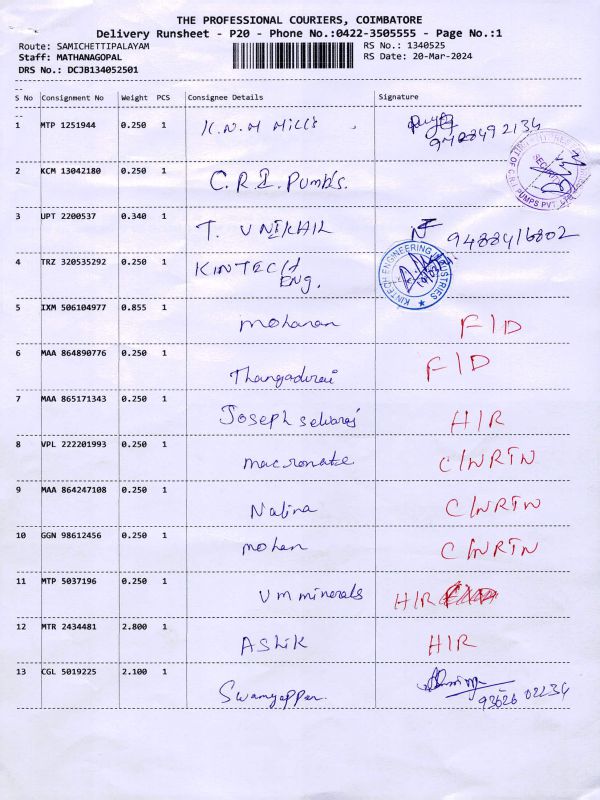 THE PROFESSIONAL COURIERS, COIMBATORE
Delivery Runsheet - P20 - Phone No.:0422-3505555 - Page No.:1
Route: SAMICHETTIPALAYAM RS No.: 1340525
Staff: MATHANAGOPAL RS Date: 20-Mar-2024
DRS No.: DCJB134052501
S No Consignment No Weight PCS Consignee Details Signature
1 MTP 1251944 0.250 1 K.N.M Mills
2 KCM 13042180 0.250 1 C.R.I. Pumb's.
3 UPT 2200537 0.340 1 T. U NIKHIL 9488416802
4 TRZ 320535292 0.250 1 KINTECH
ENG.
KINTECH ENGINEERING INDUSTRIES
5 IXM 506104977 0.855 1 mohanan F/D
6 MAA 864890776 0.250 1 Thangadurai F/D
7 MAA 865171343 0.250 1 Joseph selvaraj H/R
8 VPL 222201993 0.250 1 macronate C/NRTN
9 MAA 864247108 0.250 1 Nalina C/NRTN
10 GGN 98612456 0.250 1 mohan C/NRTN
11 MTP 5037196 0.250 1 Vm minerals H/R
12 MTR 2434481 2.800 1 ASHIK H/R
13 CGL 5019225 2.100 1 Swamyappan.
93626 02234